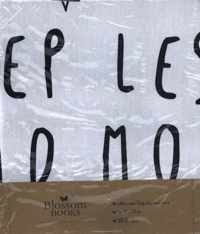 EP LES
D MO
Blossom
BOOKS